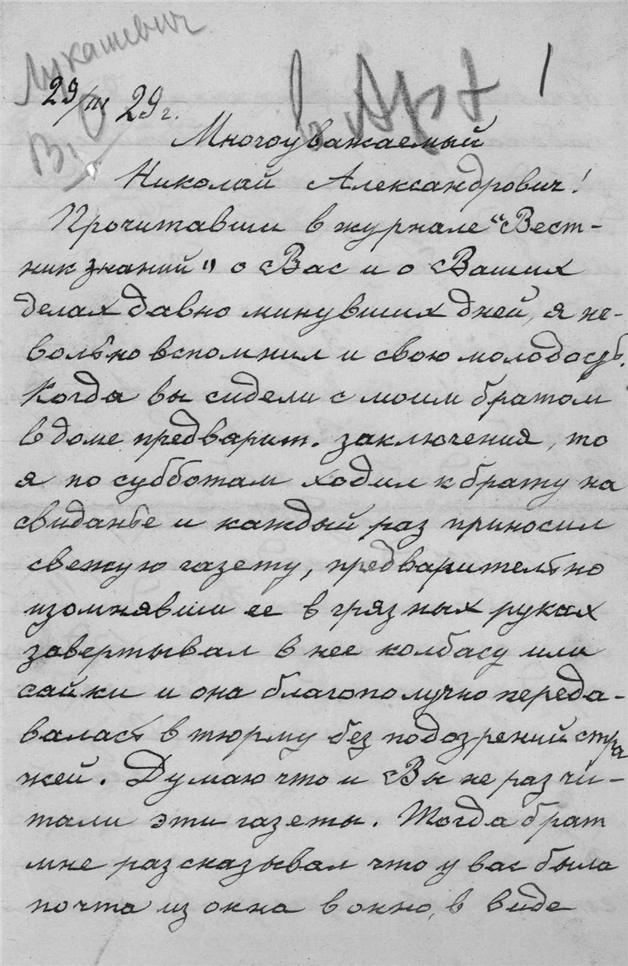 Лукашевич
1
29/III 29 г.
Многоуважаемый
Николай Александрович!
Прочитавши в журнале "Вест-
ник знаний" о Вас и о Ваших
делах давно минувших дней, я не-
вольно вспомнил и свою молодость.
Когда вы сидели с моим братом
в доме предварит. заключения, то
я по субботам ходил к брату на
свиданье и каждый раз приносил
свежую газету, предварительно
изомнявши ее в грязных руках
завертывал в нее колбасу или
сайки и она благополучно переда-
валась в тюрму без подозрений стра
жей. Думаю что и Вы не раз чи-
тали эти газеты. Тогда брат
мне рассказывал что у вас была
почта из окна в окно, в виде